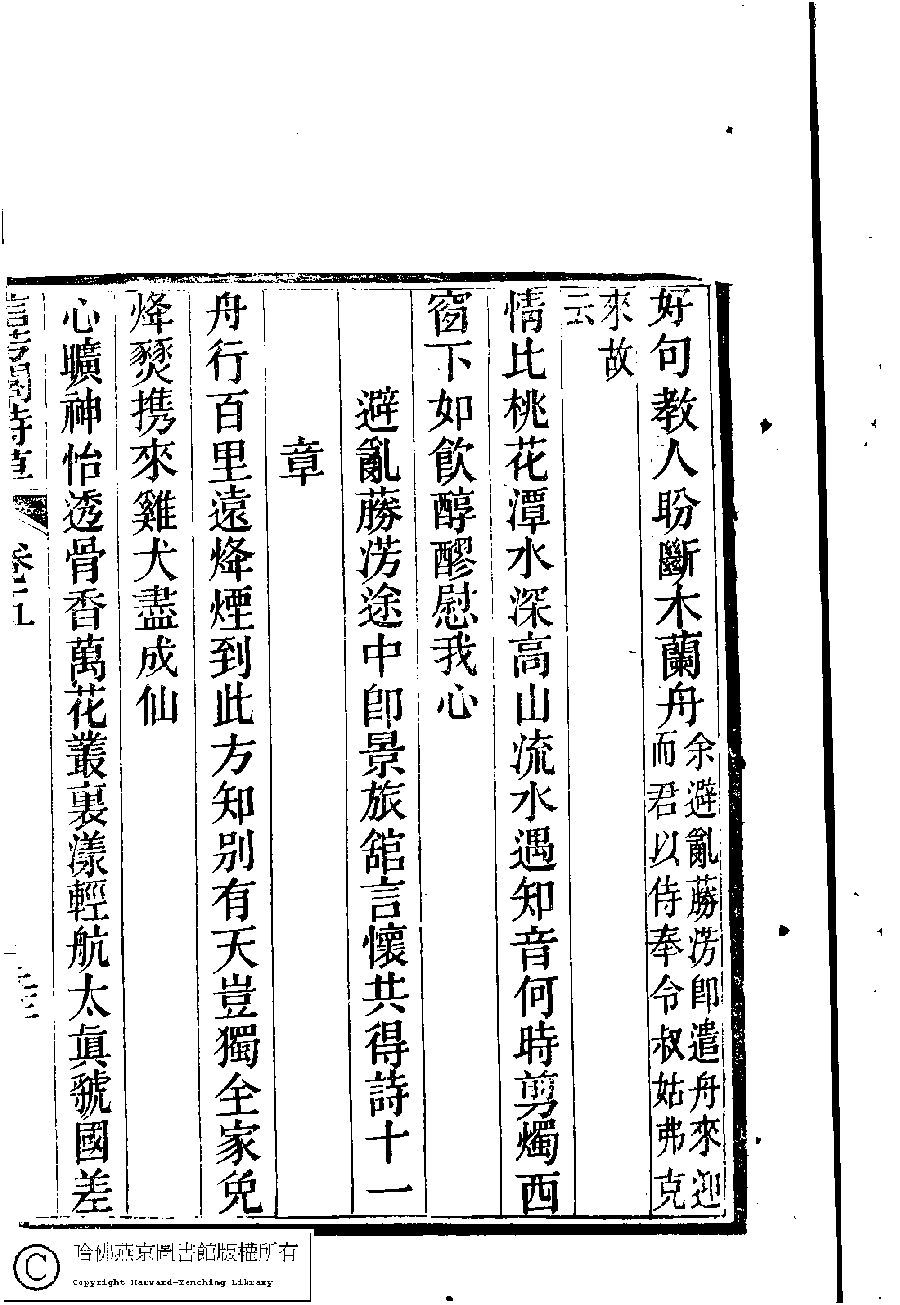 好句教人盼斷木蘭舟余避亂勝淓卽遣舟來迎而君以侍奉令叔姑弗克
來故云
情比桃花潭水深高山流水遇知音何時剪燭西
窗下如飲醇醪慰我心
避亂勝淓途中卽景旅舘言懷共得詩十一
章
舟行百里遠烽煙到此方知別有天豈獨全家免
烽燹携來雞犬盡成仙
心曠神怡透骨香萬花叢裏漾輕航太眞虢國差
信芳閣詩草 卷五
哈佛燕京圖書館版權所有
Copyright Harvard-Yenching Library